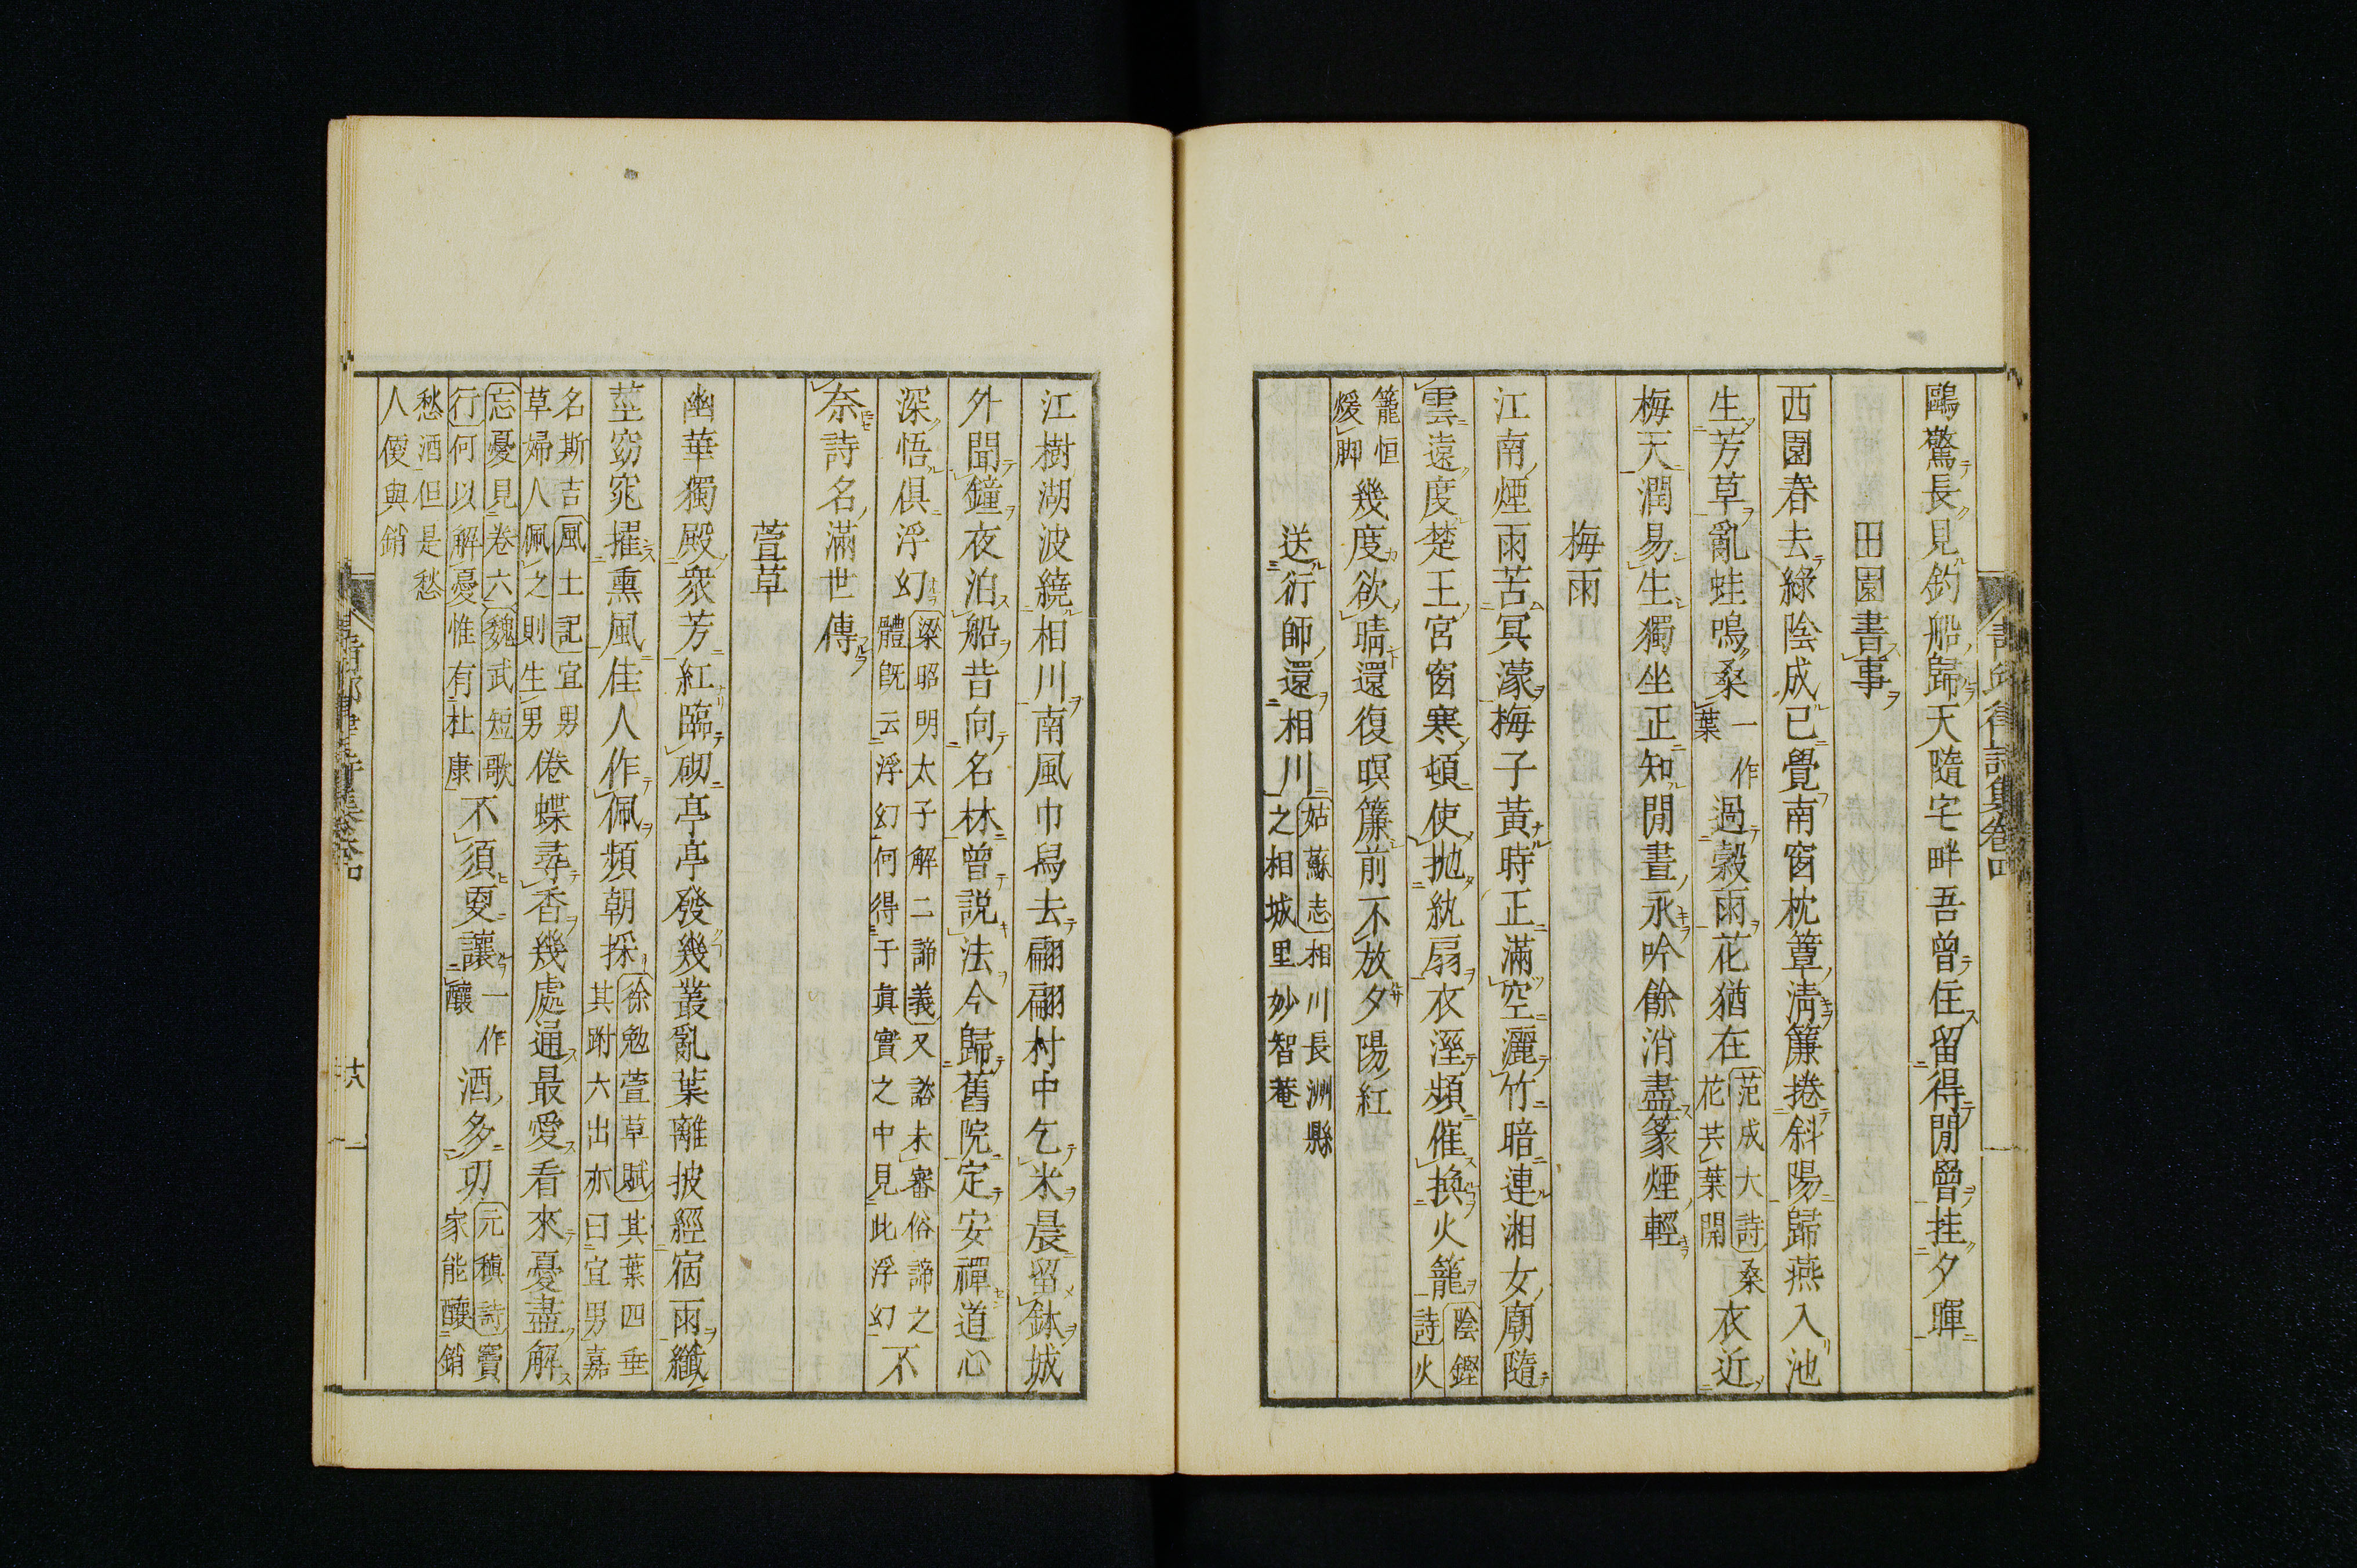 鷗驚長見釣船歸天隨宅畔吾曾住留得閒罾挂夕暉
田園書事
西園春去綠陰成已覺南窗枕簟淸簾捲斜陽歸燕入池
生芳草亂蛙鳴桑一作葉過穀雨花猶在范成大詩桑花共葉開衣近
梅天潤易生獨坐正知閒晝永吟餘消盡篆煙輕
梅雨
江南煙雨苦冥濛梅子黃時正滿空灑竹暗連湘女廟隨
雲遠度楚王宮窗寒頓使拋紈扇衣溼頻催換火籠陰鏗詩火
籠恒煖脚幾度欲晴還復暝簾前不放夕陽紅
送衍師還相川姑蘇志相川長洲縣之相城里妙智菴
江樹湖波繞相川南風巾舄去翩翩村中乞米晨留鉢城
外聞鐘夜泊船昔向名林曾説法今歸舊院定安禪道心
深悟俱浮幻梁昭明太子解二諦義又諮未審俗諦之體既云浮幻何得于眞實之中見此浮幻不
奈詩名滿世傳
萱草
幽華獨殿衆芳紅臨砌亭亭發幾叢亂葉離披經宿雨纖
莖窈窕擢熏風佳人作佩頻朝採徐勉萱草賦其葉四垂其跗六出亦曰宜男嘉
名斯吉風土記宜男草婦人佩之則生男倦蝶尋香幾處通最愛看來憂盡解
忘憂見卷六魏武短歌行何以解憂惟有杜康不須更讓一作釀酒多功元稹詩竇家能釀銷
愁酒但是愁人便與銷